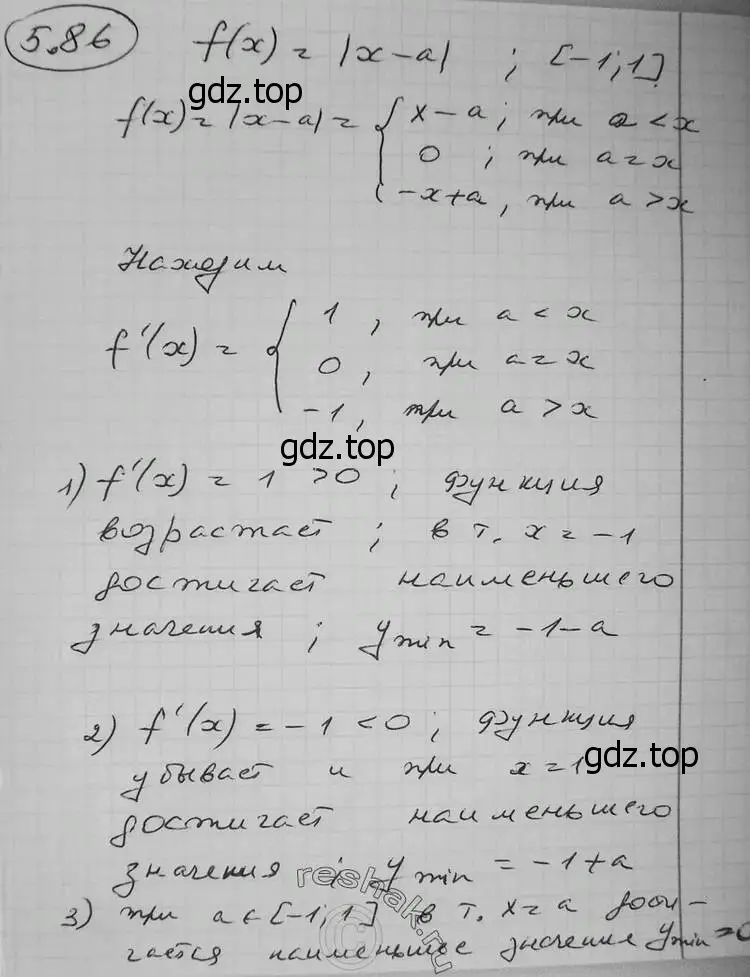 5.86 f(x) = |x-a| ; [-1; 1].
gdz.top
f(x) = |x-a| = { x-a; при a < x
0 ; при a = x
-x+a, при a > x
Находим
f'(x) = { 1, при a < x
0, при a = x
-1, при a > x
gdz.top
1) f'(x) = 1 > 0 ; функция
возрастает ; в т. x = -1
достигает наименьшего
значения ; y min = -1-a
2) f'(x) = -1 < 0 ; функция
убывает и при x = 1
gdz.top
достигает наименьшего
значения ; y min = -1+a
reshak.ru
3) при a ∈ [-1; 1] в т. x = a дости-
гается наименьшее значения y min = 0